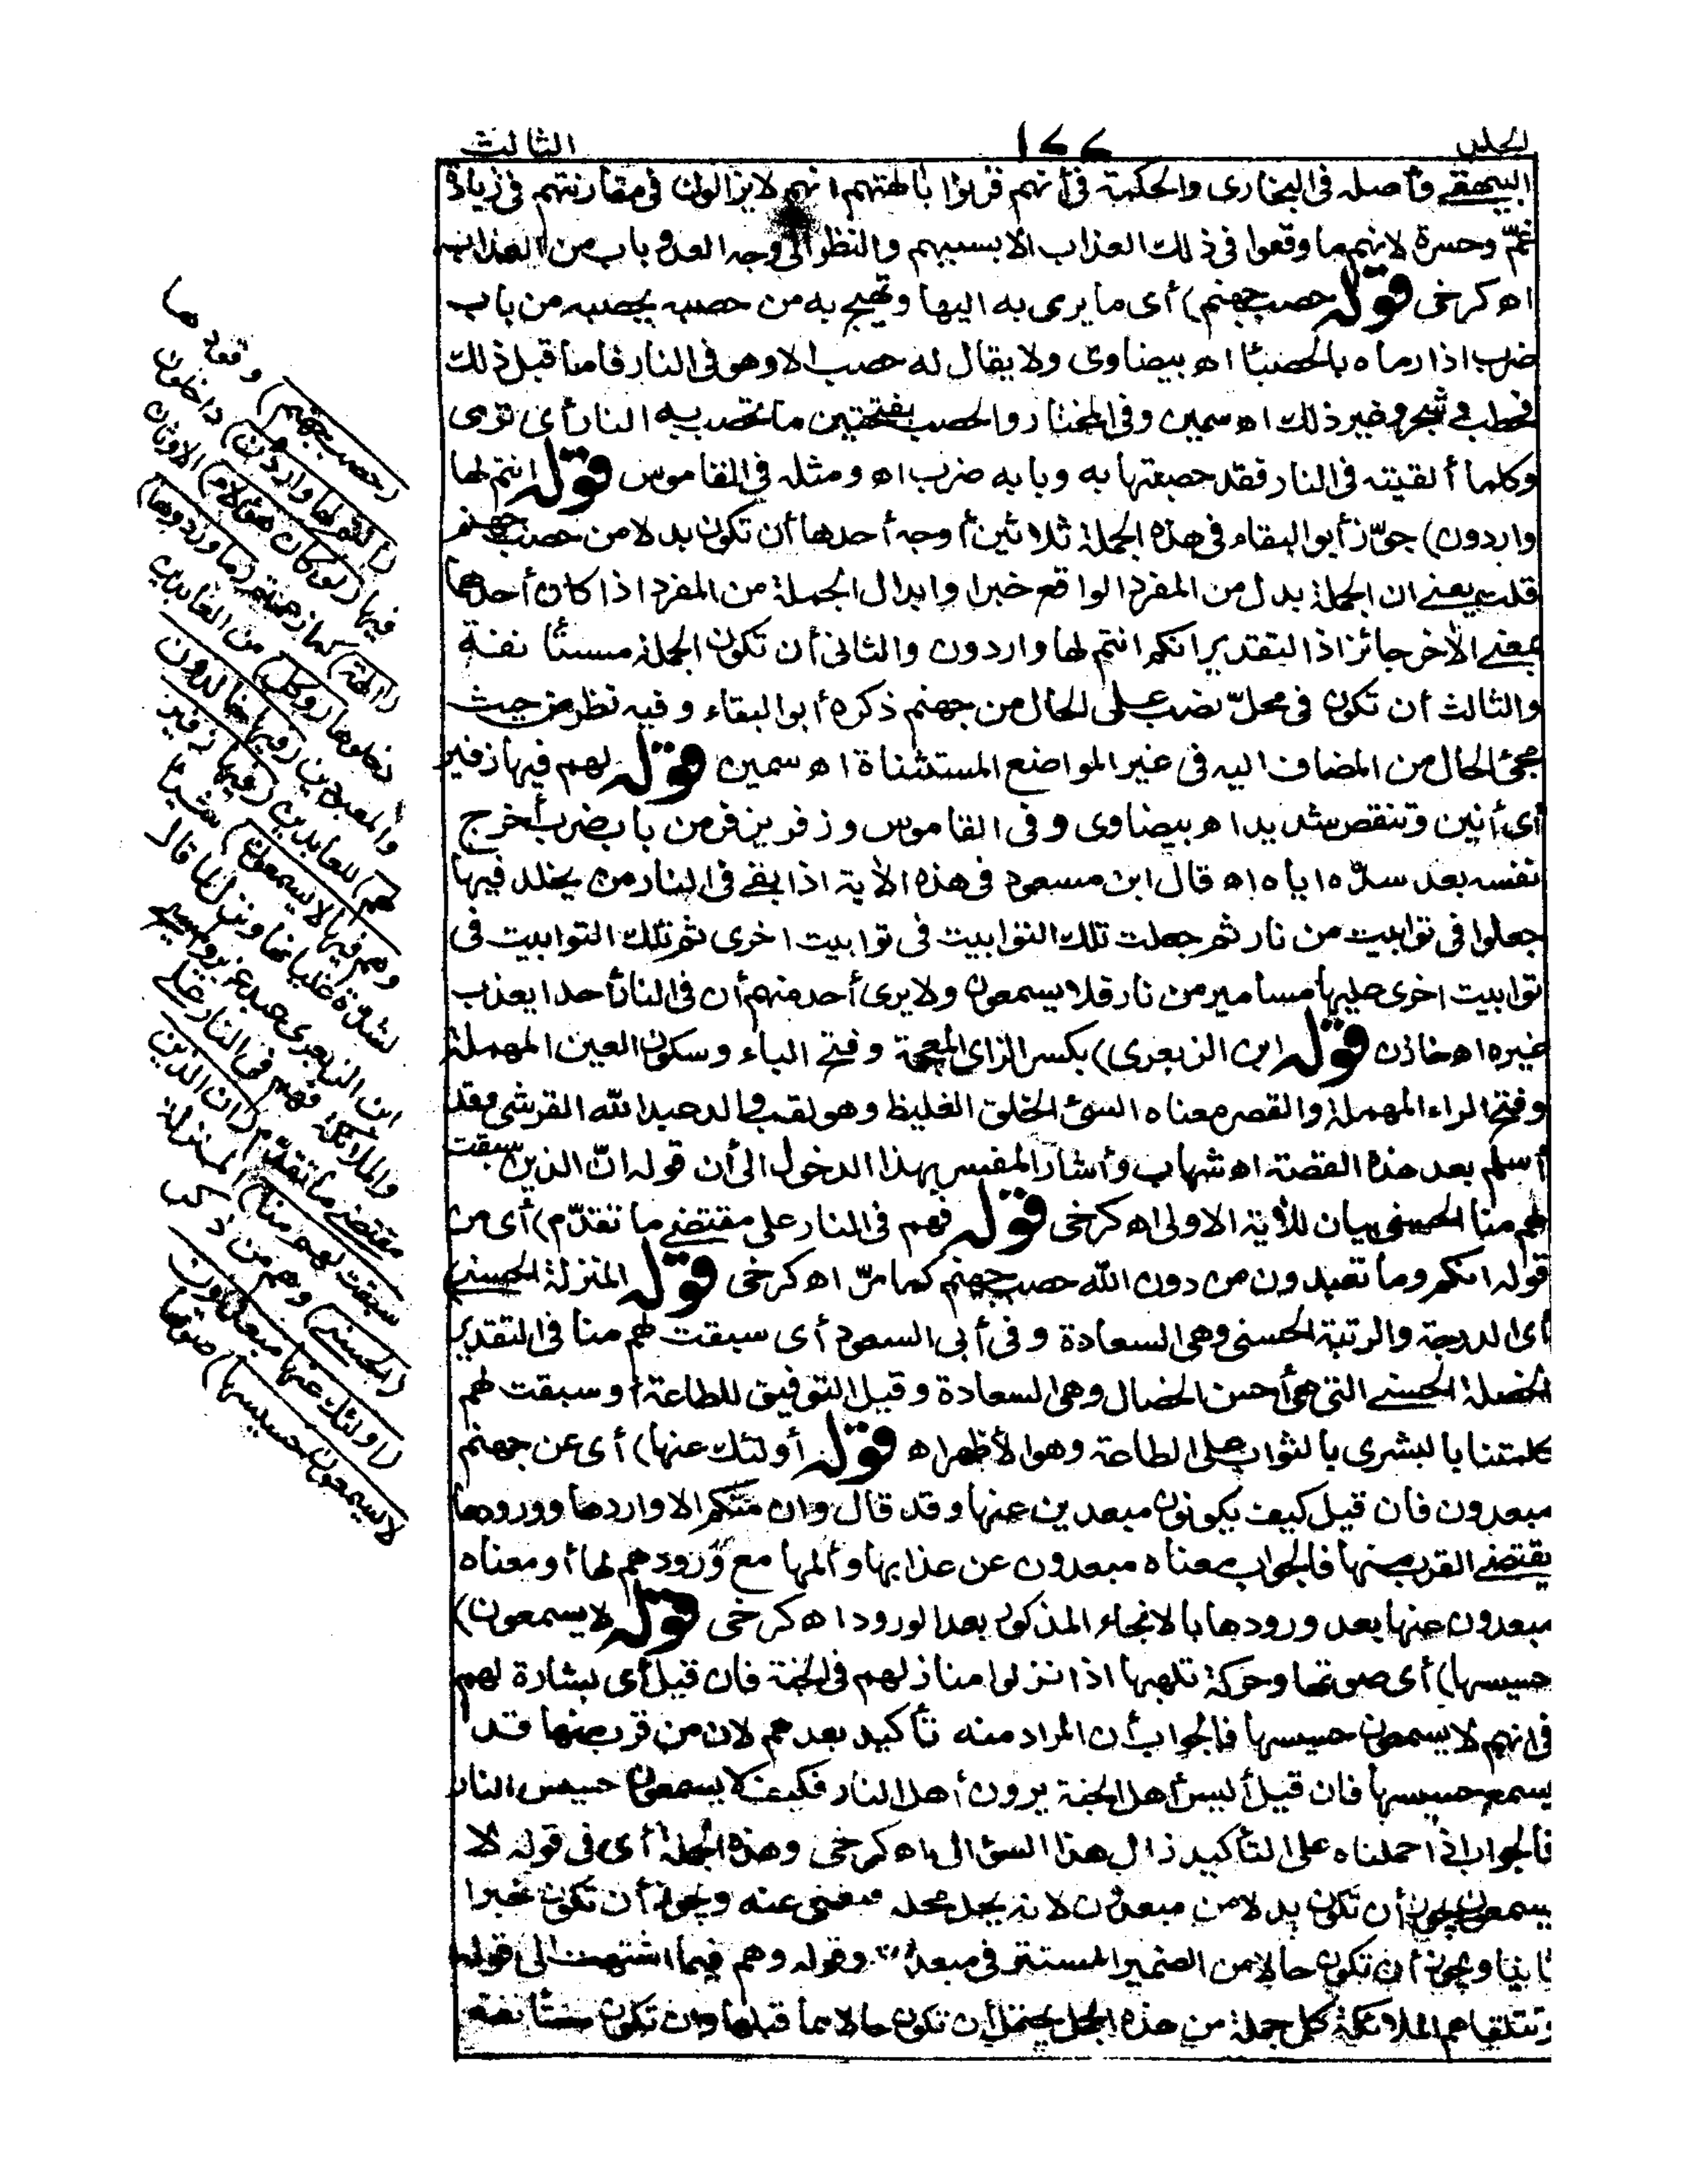 الجلس
١٤٤
الثالث
البيهقي وأصله في البخاري والحكمة في أنهم قرنوا بآلهتهم انهم لا يزالون في مقارنتهم في زيادة
غمّ وحسرة لانهم ما وقعوا في ذلك العذاب الا بسببهم والنظر الى وجه العدو باب من العذاب
اه كرخى قوله حصب جهنم) أى ما يرى به اليها وتهيج به من حصبه يحصبه من باب
ضرب اذا رماه بالحصبا اه بيضاوى ولا يقال له حصب الا وهو فى النار فامنا قبل ذلك
فحطب وشجر وغير ذلك اه سمين وفى المختار والحصب بفتحتين ما تحصب به النار أى ترمى
وكلما ألقيته فى النار فقد حصبتها به وبابه ضرب اه ومثله فى القاموس قوله انتم لها
واردون) جوّز أبو البقاء فى هذه الجملة ثلاثين أوجه أحدها أن تكون بدلا من حصب جهنم
قلت يعنى ان الجملة بدل من المفرد الواقع خبرا وابدال الجملة من المفرد اذا كان أحدها
بمعنى الآخر جائز اذ التقدير انكم انتم لها واردون والثانى أن تكون الجملة مستأنفة
والثالث أن تكون فى محلّ نصب على الحال من جهنم ذكره أبو البقاء وفيه نظر من حيث
مجئ الحال من المضاف اليه فى غير المواضع المستثناة اه سمين قوله لهم فيها زفير
أى أنين وتنفس شديد اه بيضاوى وفى القاموس وزفر يزفر من باب ضرب أخرج
نفسه بعد سدّه اياه اه قال ابن مسعود فى هذه الآية اذا بقى فى النار من يخلد فيها
جعلوا فى توابيت من نار ثم جعلت تلك التوابيت فى توابيت اخرى ثم تلك التوابيت فى
توابيت اخرى عليها مسامير من نار فلا يسمعون ولا يرى أحد منهم أن فى النار أحدا يعذب
غيره اه خازن قوله ابن الزبعرى) بكسر الزاى المعجمة وفتح الباء وسكون العين المهملة
وفتح الراء المهملة والقصر معناه السئ الخلق الغليظ وهو لقب والد عبد الله القرشى وقد
أسلم بعد هذه القصة اه شهاب وأشار المفسر بهذا الدخول الى أن قوله انّ الذين سبقت
لهم منا الحسنى بيان للآية الاولى اه كرخى قوله فهم فى النار على مقتضى ما تقدّم) أى من
قوله انكم وما تعبدون من دون الله حصب جهنم كما مرّ اه كرخى قوله المنزلة الحسنى)
أى الدرجة والرتبة الحسنى وهى السعادة وفى أبى السعود أى سبقت لهم منا فى التقدير
الخصلة الحسنى التى هى أحسن الخصال وهى السعادة وقيل التوفيق للطاعة أو سبقت لهم
كلمتنا بالبشرى بالثواب على الطاعة وهو الأظهر اه قوله أولئك عنها) أى عن جهنم
مبعدون فان قيل كيف يكونون مبعدين عنها وقد قال وان منكم الا واردها وورودها
يقتضى القرب منها فالجواب معناه مبعدون عن عذابها وألمها مع ورودهم لها أو معناه
مبعدون عنها بعد ورودها بالانجاء المذكور بعد الورود اه كرخى قوله لا يسمعون)
حسيسها) أى صوتها وحركة تلهبها اذا نزلوا منازلهم فى الجنة فان قيل أى بشارة لهم
فى انهم لا يسمعون حسيسها فالجواب أن المراد منه تأكيد بعدهم لان من قرب منها قد
يسمع حسيسها فان قيل أليس أهل الجنة يرون أهل النار فكيف لا يسمعون حسيس النار
فالجواب اذا حملناه على التأكيد زال هذا السؤال اه كرخى وهذه الجملة أى فى قوله لا
يسمعون يجوز أن تكون بدلا من مبعدون لانه يحل محله فتغنى عنه ويجوز أن تكون خبرا
ثانيا ويجوز أن تكون حالا من الضمير المستتر فى مبعدون وقوله وهم فيما اشتهت الى قوله
وتتلقاهم الملائكة كل جملة من هذه الجمل يحتمل أن تكون حالا مما قبلها وأن تكون مستأنفة
(حصب جهنم) وقودها
(انتم لها واردون) داخلون
فيها (لو كان هؤلاء) الاوثان
(آلهة) كما زعمتم (ما وردوها)
دخلوها (وكل) من العابدين
والمعبودين (فيها خالدون
لهم) للعابدين (فيها زفير
وهم فيها لا يسمعون) شيئا
لشدة غليانها ونزل لما قال
ابن الزبعرى عبد عزير والمسيح
والملائكة فهم فى النار على
مقتضى ما تقدّم (ان الذين
سبقت لهم منا) المنزلة
(الحسنى) ومنهم من ذكر
(اولئك عنها مبعدون
لا يسمعون حسيسها) صوتها